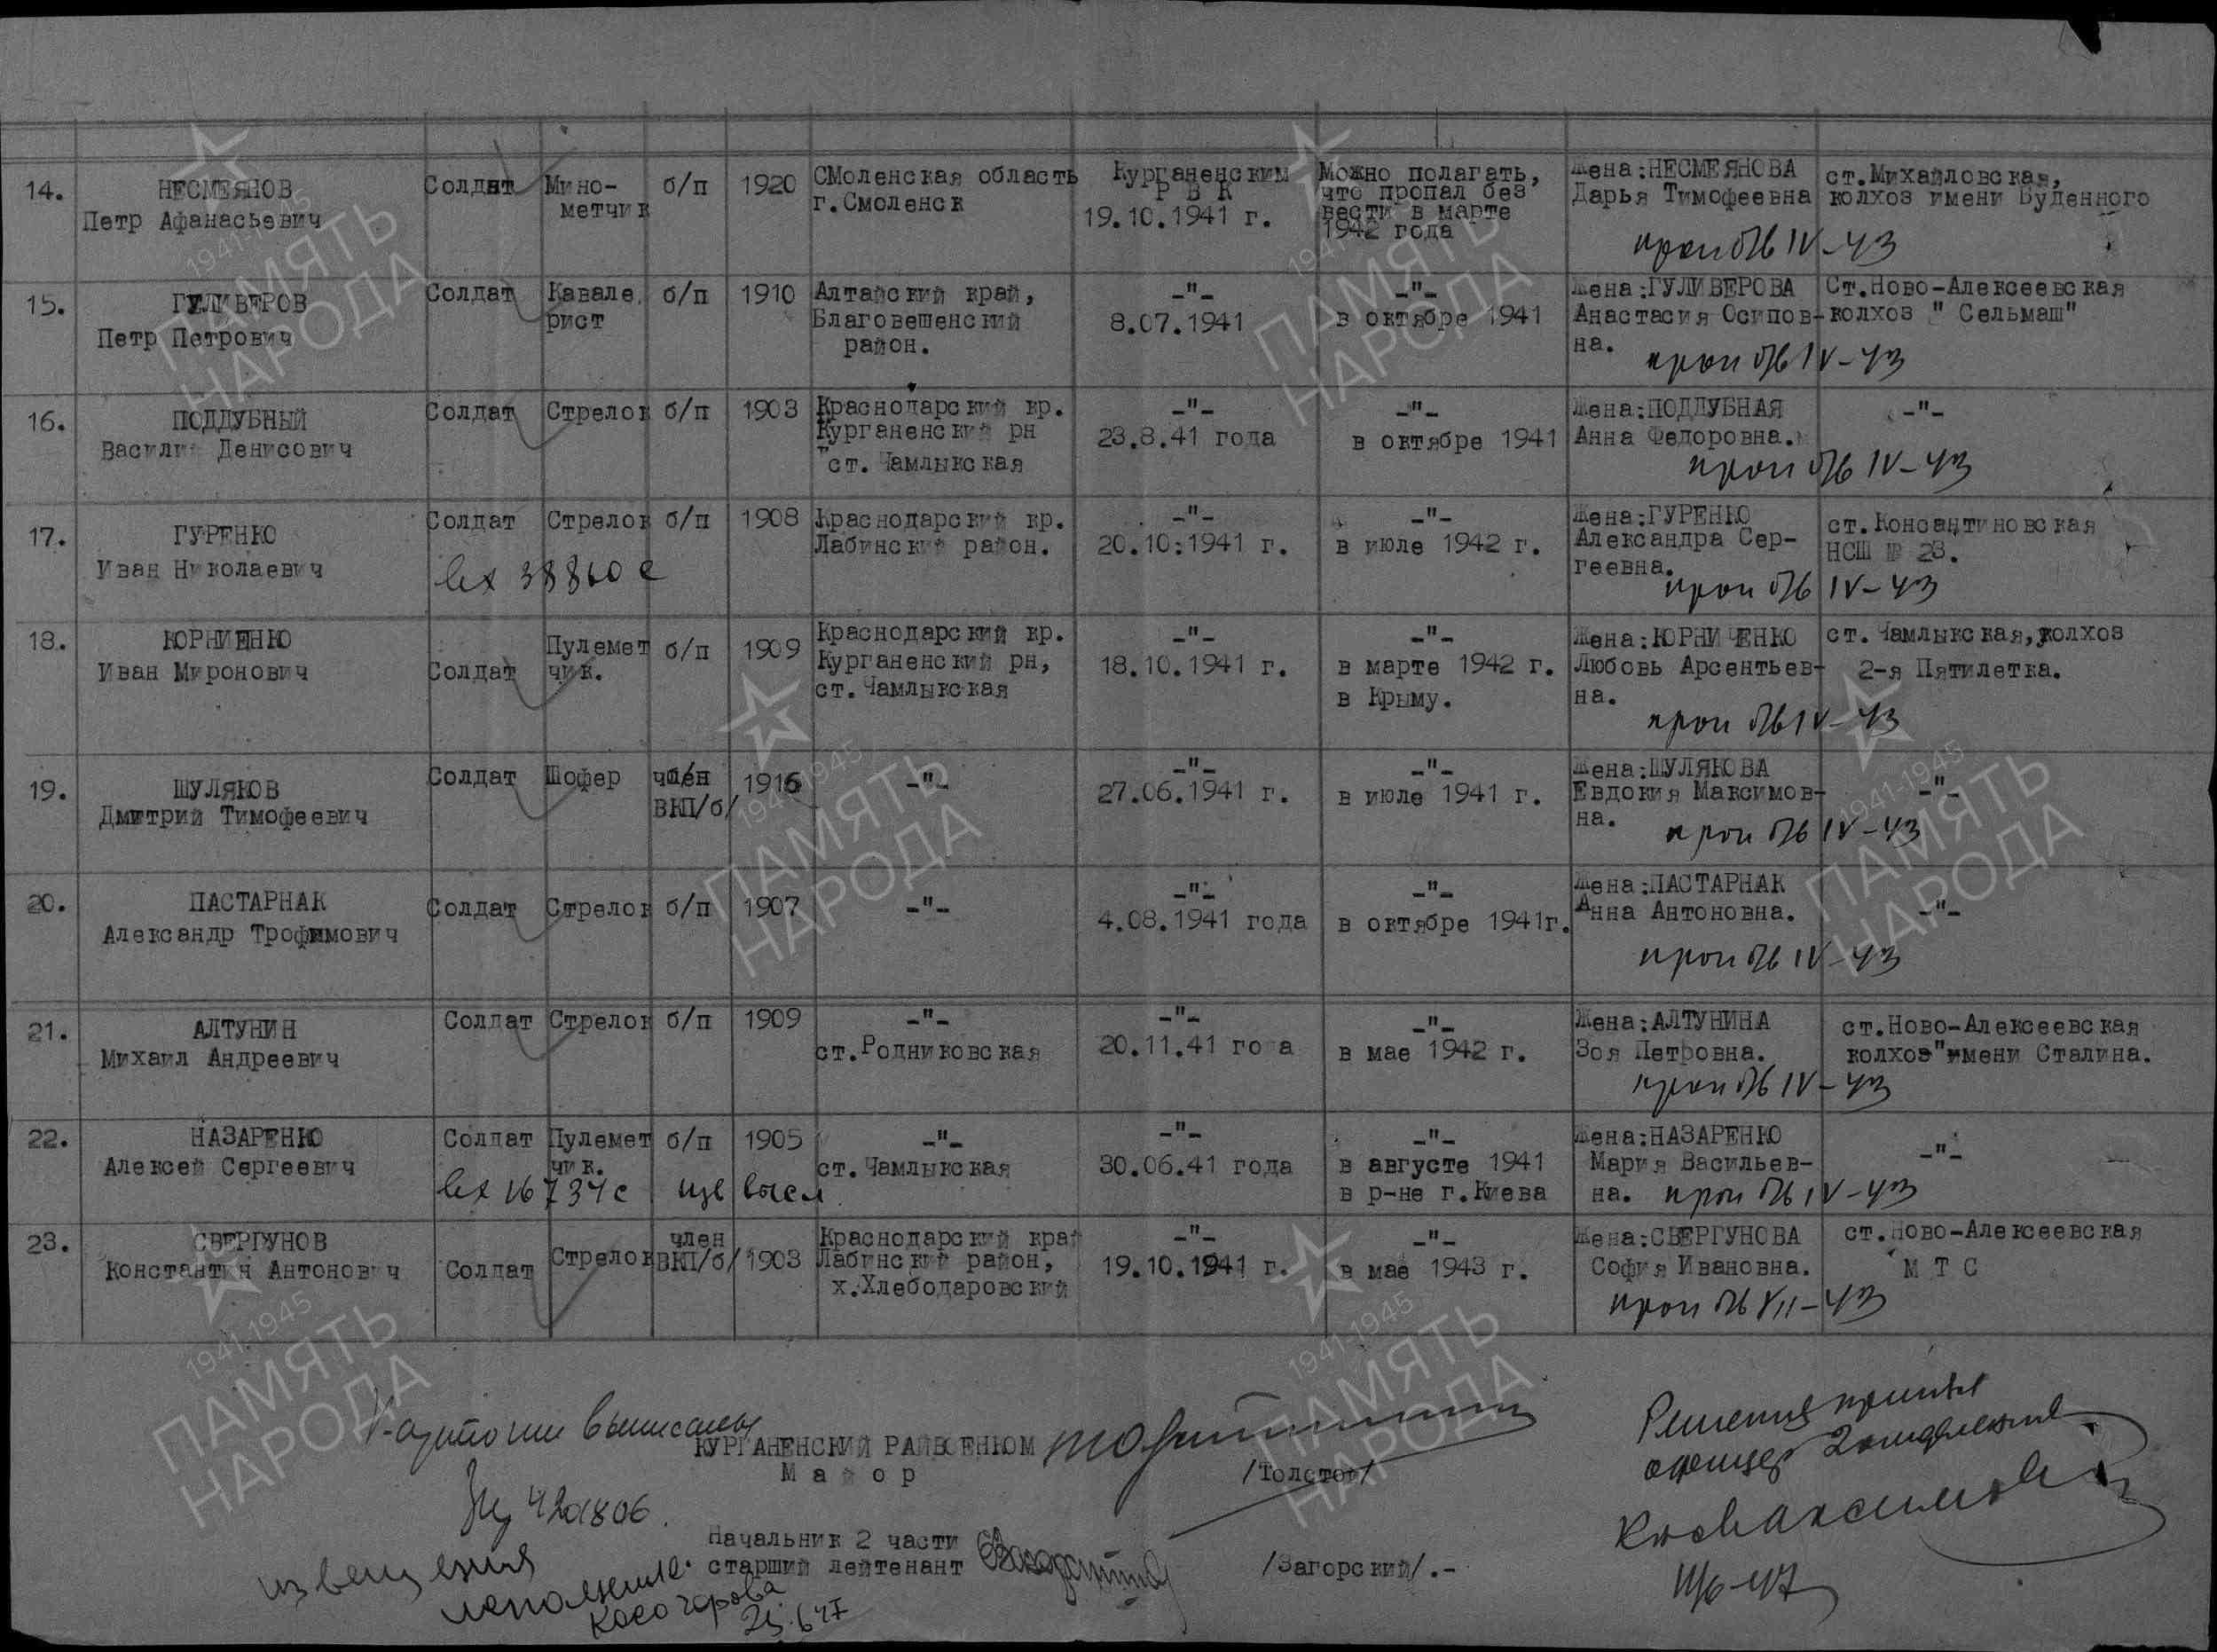 14.
НЕСМЕЯНОВ
Петр Афанасьевич
Солдат
Мино-
метчик
б/п
1920
СМоленская область
г.Смоленск
Курганенским
Р В К
19.10.1941 г.
Можно полагать,
что пропал без
вести в марте
1942 года
Жена:НЕСМЕЯНОВА
Дарья Тимофеевна
ст.Михайловская,
колхоз имени Буденного
проп б/в IV-43
15.
ГУЛИВЕРОВ
Петр Петрович
Солдат
Кавале
рист
б/п
1910
Алтайский край,
Благовешенский
район.
-"-
8.07.1941
-"-
в октябре 1941
Жена:ГУЛИВЕРОВА
Анастасия Осипов-
на.
Ст.Ново-Алексеевская
колхоз " Сельмаш"
проп б/в IV-43
16.
ПОДДУБНЫЙ
Василий Денисович
Солдат
Стрелок
б/п
1903
Краснодарский кр.
Курганенский рн
"ст. Чамлыкская
-"-
23.8.41 года
-"-
в октябре 1941
Жена:ПОДДУБНАЯ
Анна Федоровна.
-"-
проп б/в IV-43
17.
ГУРЕНКО
Иван Николаевич
Солдат
Стрелок
б/п
1908
Краснодарский кр.
Лабинский район.
-"-
20.10:1941 г.
-"-
в июле 1942 г.
Жена:ГУРЕНКО
Александра Сер-
геевна.
ст.Консантиновская
НСШ № 23.
вх 38860 с
проп б/в IV-43
18.
КОРНИЕНКО
Иван Миронович
Солдат
Пулемет
чик.
б/п
1909
Краснодарский кр.
Курганенский рн,
ст.Чамлыкская
-"-
18.10.1941 г.
-"-
в марте 1942 г.
в Крыму.
Жена:КОРНИЧЕНКО
Любовь Арсентьев-
на.
ст.Чамлыкская, колхоз
2-я Пятилетка.
проп б/в IV-43
19.
ШУЛЯКОВ
Дмитрий Тимофеевич
Солдат
Шофер
член
ВКП/б/
1916
-"-
-"-
27.06.1941 г.
-"-
в июле 1941 г.
Жена:ШУЛЯКОВА
Евдокия Максимов-
на.
-"-
проп б/в IV-43
20.
ПАСТАРНАК
Александр Трофимович
Солдат
Стрелок
б/п
1907
-"-
-"-
4.08.1941 года
-"-
в октябре 1941г.
Жена:ПАСТАРНАК
Анна Антоновна.
-"-
проп б/в IV-43
21.
АЛТУНИН
Михаил Андреевич
Солдат
Стрелок
б/п
1909
-"-
ст.Родниковская
-"-
20.11.41 года
-"-
в мае 1942 г.
Жена:АЛТУНИНА
Зоя Петровна.
ст.Ново-Алексеевская
колхоз"имени Сталина.
проп б/в IV-43
22.
НАЗАРЕНКО
Алексей Сергеевич
Солдат
Пулемет
чик.
б/п
1905
-"-
ст.Чамлыкская
-"-
30.06.41 года
-"-
в августе 1941
в р-не г.Киева
Жена:НАЗАРЕНКО
Мария Васильев-
на.
-"-
вх 16734с изв высл
проп б/в IV-43
23.
СВЕРГУНОВ
Константин Антонович
Солдат
Стрелок
член
ВКП/б/
1903
Краснодарский край
Лабинский район,
х.Хлебодаровский
-"-
19.10.1941 г.
-"-
в мае 1943 г.
Жена:СВЕРГУНОВА
София Ивановна.
ст.Ново-Алексеевская
М Т С
проп б/в VII-43
выписаны
КУРГАНЕНСКИЙ РАЙВОЕНКОМ
М а й о р
/Толстов/
Начальник 2 части
старший лейтенант
/Загорский/.-
извещения
Косогорова
Решения принял
офицер 2 отделения
1941-1945
ПАМЯТЬ
НАРОДА
1941-1945
ПАМЯТЬ
НАРОДА
1941-1945
ПАМЯТЬ
НАРОДА
1941-1945
ПАМЯТЬ
НАРОДА
1941-1945
ПАМЯТЬ
НАРОДА
1941-1945
ПАМЯТЬ
НАРОДА